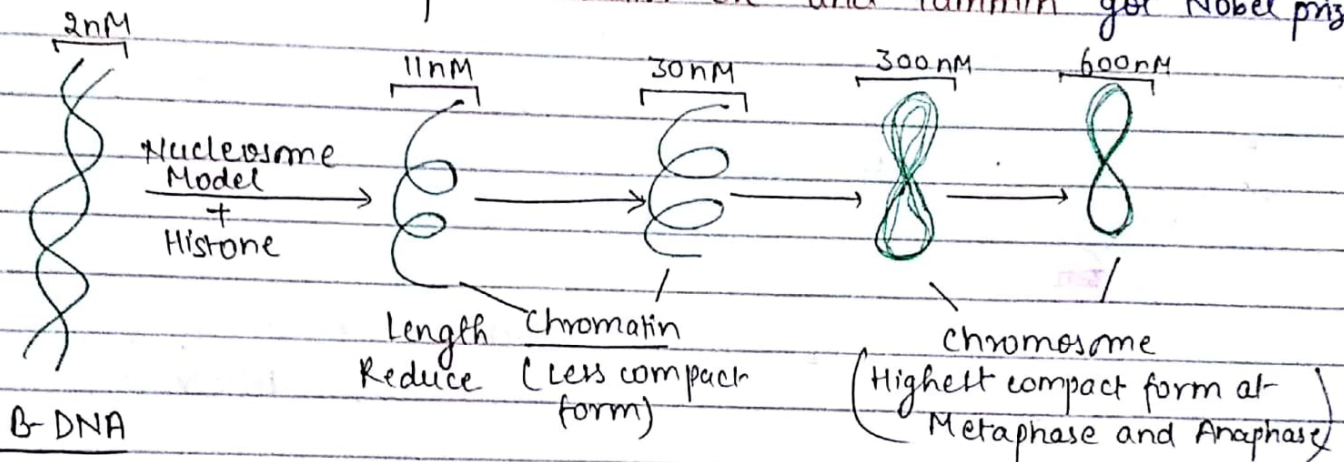 and got Nobel
2nM
11nM
30nM
300nM
600nM
Nucleosme
Model
+
Histone
Length
Reduce
Chromatin
(Less compact
form)
Chromosome
(Highest compact form at
Metaphase and Anaphase)
B-DNA